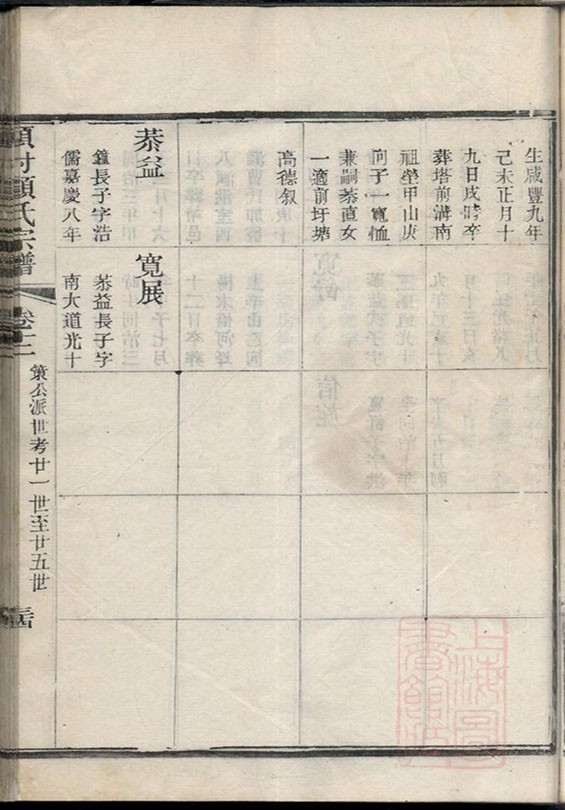 生咸豐九年
己未正月十
九日戌時卒
葬塔前濟南
祖塋甲山庚
向子一寬恤
兼嗣恭直女
一適前圩塘
高德叙
恭益
鐘長子字浩
儒嘉慶八年
寬展
恭益長子字
南大道光十
項氏宗譜
卷三
策公派世考廿一世至廿五世
上海圖書館藏